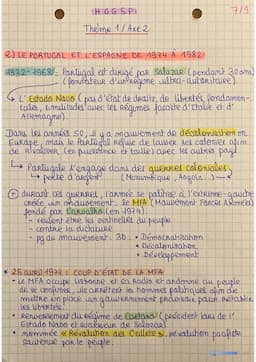 H.G.G.S.P.
7/9
Thème 1 / Axe 2
2.) LE PORTUGAL ET L'ESPAGNE DE 1974 À 1982
1932-1968/ Portugal est dirigé par Salazar (pendant 30ans)
(fondateur d'un régime ultra-autoritaire)
↳ L'Estado Novo (pas d'état de droits, de libertés fondamen-
tales, similitudes avec les régimes fasciste d'Italie et d'
Allemagne).
Dans les années 50, il y a mouvement de décolonisation en
Europe, mais le Portugal refuse de laisser ses colonies afin
de Rivaliser, (en puissance et taille) avec les autres pays.
↳ Portugais s'engage dans des guerres coloniales
↳ perte d'argent (Mozambique, Angola...)
⊕ durant ces guerres, l'armée se politise à l'extrême-gauche
créée un mouvement: le MFA (Mouvement Forces Armées)
fondé par Carvalho (en 1974)
- veulent être les portevoix du peuple
- contre la dictature
- pg du mouvement: 3D: • Démocratisation
• Décolonisation
• Développement
* 25 avril 1974 : COUP D'ÉTAT DE LA MFA
• Le MFA occupe Lisbonne et sa Radio et ordonne au peuple
de se confiner, ils arrêtent les hommes politiques afin de
mettre en place un gouvernement provisoire pour rétablir
les libertés.
• Renversement du régime de Caetano (président lors de l'
Estado Novo et successeur de Salazar)
• nommée « Révolution des Œillets », révolution pacifiste
soutenue par le peuple.